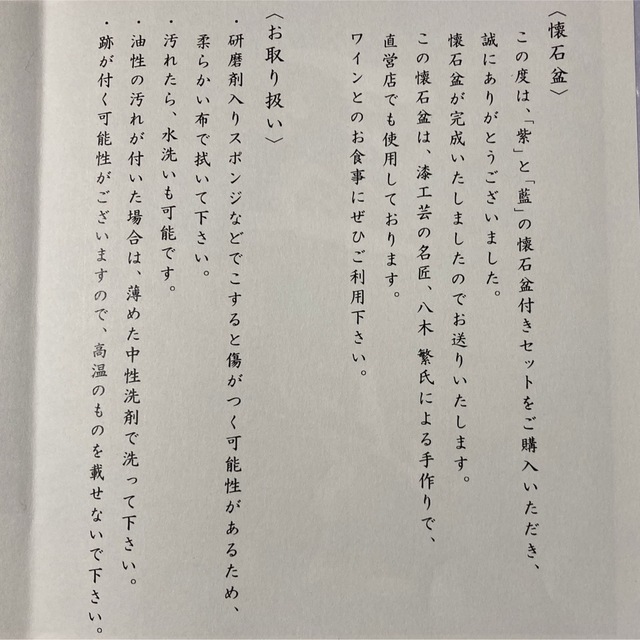 〈懐石盆〉
この度は、「紫」と「藍」の懐石盆付きセットをご購入いただき、
誠にありがとうございました。
懐石盆が完成いたしましたのでお送りいたします。
この懐石盆は、漆工芸の名匠、八木 繁氏による手作りで、
直営店でも使用しております。
ワインとのお食事にぜひご利用下さい。
〈お取り扱い〉
・研磨剤入りスポンジなどでこすると傷がつく可能性があるため、
柔らかい布で拭いて下さい。
・汚れたら、水洗いも可能です。
・油性の汚れが付いた場合は、薄めた中性洗剤で洗って下さい。
・跡が付く可能性がございますので、高温のものを載せないで下さい。